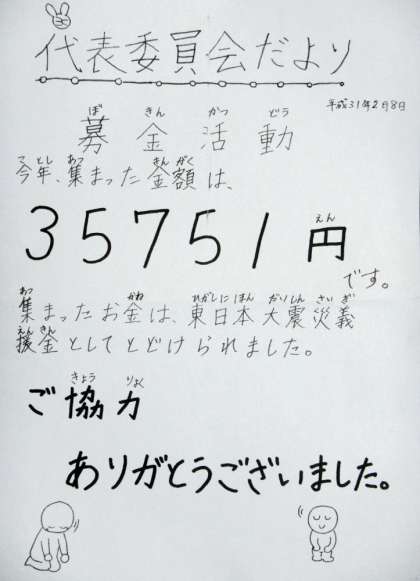 代表委員会だより
平成31年2月8日
募金活動
今年、集まった金額は、
35751円
です。
集まったお金は、東日本大震災義
援金としてとどけられました。
ご協力
ありがとうございました。